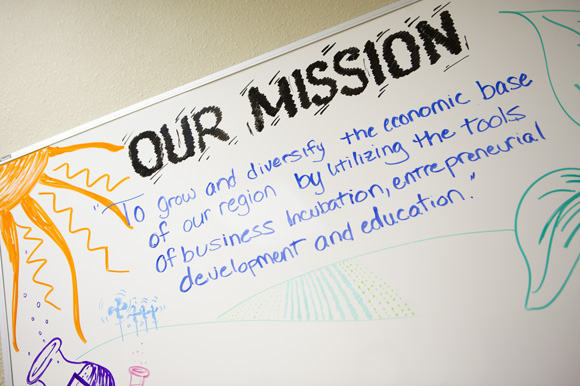 OUR MISSION
"To grow and diversify the economic base
of our region by utilizing the tools
of business incubation, entrepreneurial
development and education."